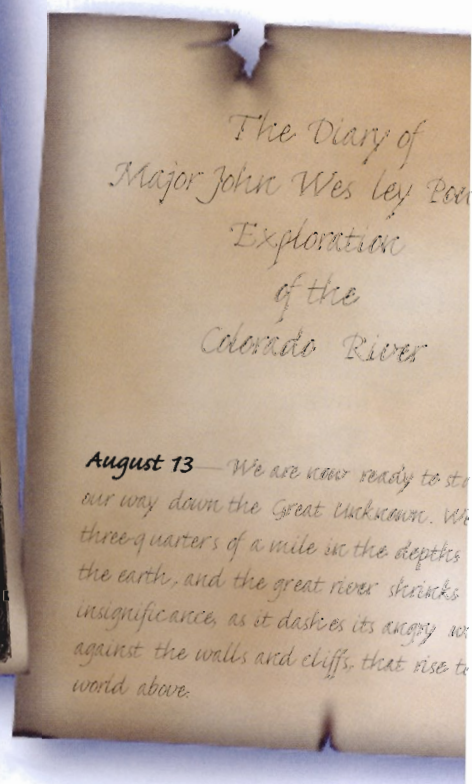 The Diary of
Major John Wes ley
Exploration
of the
Colorado River
August 13 — We are now ready to
our way down the Great Unknown. We
three-quarters of a mile in the depths
the earth, and the great river shrinks
insignificance, as it dashes its angry
against the walls and cliffs, that rise
world above.